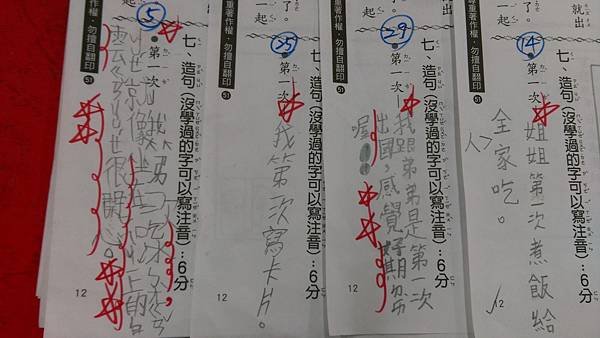 就出
14
七、造句(沒學過的字可以寫注音):6分
第一次
姐姐第一次煮飯給
全家吃。
12
尊重著作權,勿擅自翻印
51
了。
一起
29
七、造句(沒學過的字可以寫注音):6分
第一次
我跟弟弟是第一次
出國,感覺好期
喔
12
勿擅自翻印
51
了。
一起
25
七、造句(沒學過的字可以寫注音):6分
第一次
我第一次寫卡片。
12
重著作權,勿擅自翻印
51
起
5
七、造句(沒學過的字可以寫注音):6分
第一次
我
很開心。
12
重著作權,勿擅自翻印
51